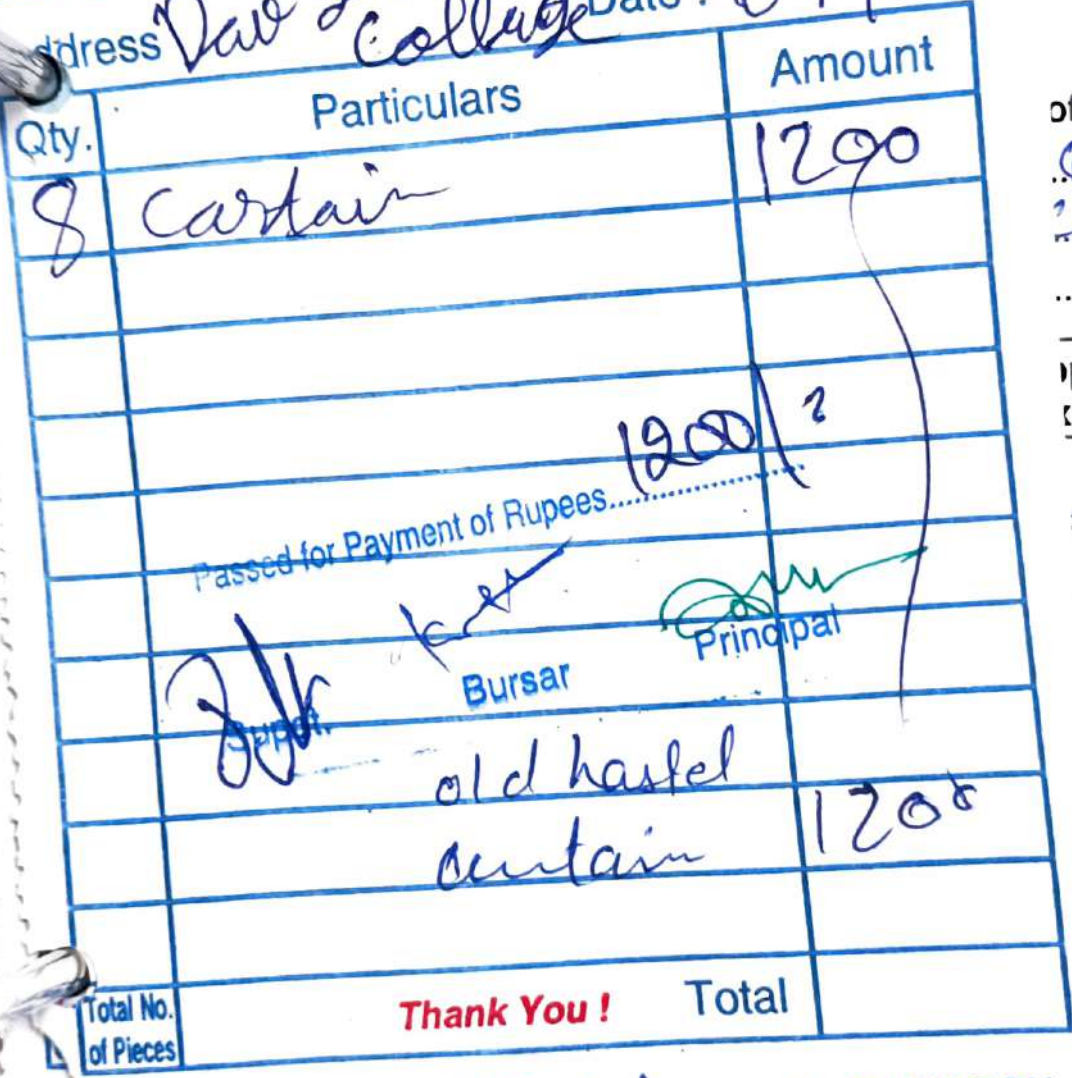 Address Dav College Date :
Qty. Particulars Amount
8 Cartain 1200
Passed for Payment of Rupees.......1200/-
Supdt. Bursar Principal
old hastel
curtain 1200
Total No. of Pieces Thank You ! Total